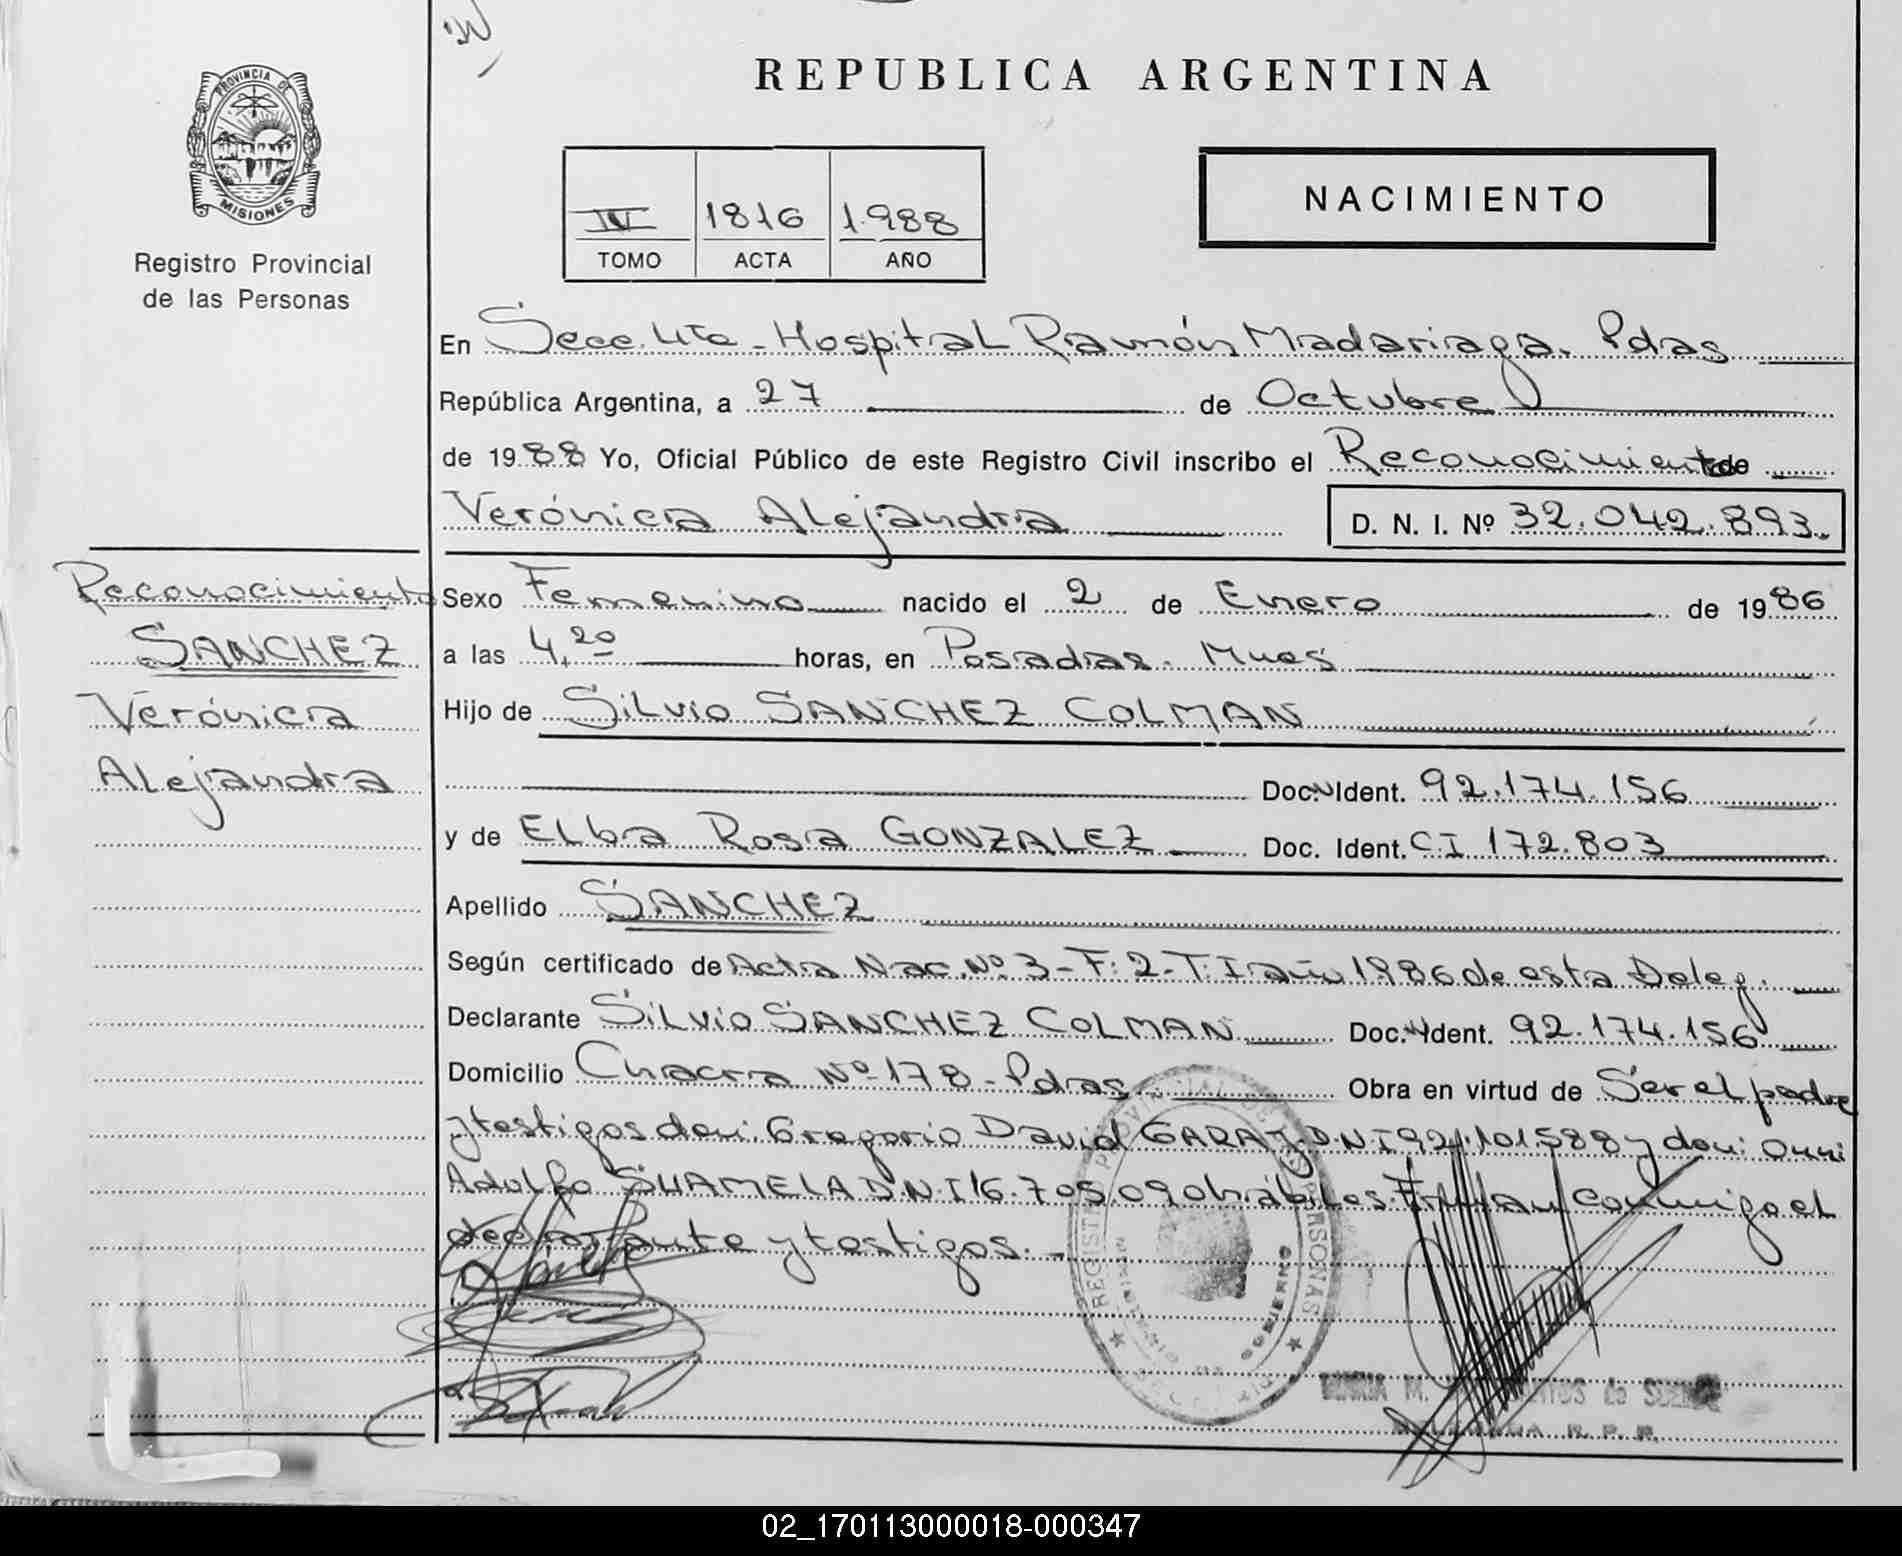 REPUBLICA ARGENTINA
PROVINCIA DE
MISIONES
Registro Provincial
de las Personas
IV 1816 1.988
TOMO ACTA AÑO
NACIMIENTO
En Secc. 4ta - Hospital Ramón Madariaga. Pdas
República Argentina, a 27 de Octubre
de 1988 Yo, Oficial Público de este Registro Civil inscribo el Reconocimiento de
Verónica Alejandra D. N. I. Nº 32.042.893.
Reconocimiento
SANCHEZ
Verónica
Alejandra
Sexo Femenino nacido el 2 de Enero de 1986
a las 4,20 horas, en Posadas. Mnes
Hijo de Silvio SANCHEZ COLMAN
Doc. Ident. 92.174.156
y de Elba Rosa GONZALEZ Doc. Ident. CI 172.803
Apellido SANCHEZ
Según certificado de Acta Nac. Nº 3 - F: 2 - T: I año 1986 de esta Deleg.
Declarante Silvio SANCHEZ COLMAN Doc. Ident. 92.174.156
Domicilio Chacra Nº 178 - Pdas Obra en virtud de Ser el padre
y testigos don: Gregorio David GARAY D.N.I 92.101588 y don:
Adolfo D.N.I 16.705.090 hábiles. Firman conmigo el
declarante y testigos. -
REGISTRO PROVINCIAL DE LAS PERSONAS
GOBIERNO
R. P. P.
02_170113000018-000347